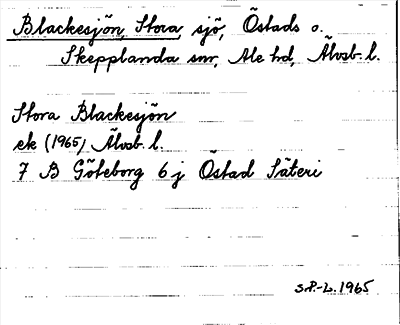 Blackesjön, Stora, sjö, Östads o.
Skepplanda snr, Ale hd, Älvsb. l.
Stora Blackesjön
ek (1965) Älvsb. l.
7 B Göteborg 6 j Östad Säteri
S.P.-L. 1965